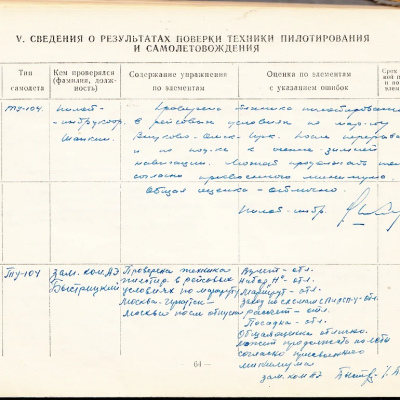 V. СВЕДЕНИЯ О РЕЗУЛЬТАТАХ ПОВЕРКИ ТЕХНИКИ ПИЛОТИРОВАНИЯ
И САМОЛЕТОВОЖДЕНИЯ
Тип
самолета
Кем проверялся
(фамилия, долж-
ность)
Содержание упражнения
по элементам
Оценка по элементам
с указанием ошибок
Срок
ТУ-104.
пилот-
Проверена техника пилотирования
в рейсовых условиях по мар-ту
Внуково-Омск-Ирк. После перерыва
и по подг-ке к осенне-зимней
навигации. Может продолжать
согласно присвоенного минимума.
Общая оценка - отлично.
Пилот-инстр.
Ту-104
зам. ком АЭ
Быстрицкий
Проверена техника
пилотир. в рейсовых
условиях по маршруту
Москва-Иркутск-
Москва после отпуска
Взлет - отл.
Набор "Н" - отл.
Маршрут - отл.
Расчет - отл.
Посадка - отл.
Общая оценка отлично.
может продолжать полеты
согласно присвоенного
минимума
зам. ком АЭ
— 64 —